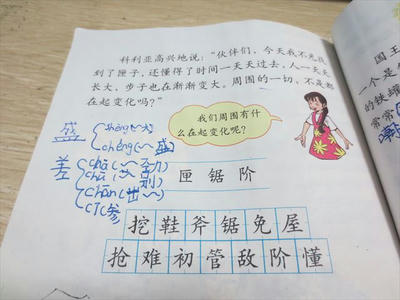 科利亚高兴地说：“伙伴们，今天我不光找
到了匣子，还懂得了时间一天天过去，人一天天
长大，步子也在渐渐变大。周围的一切，不是都
在起变化吗？”
我们周围有什
么在起变化呢？
盛
shèng(~大
chéng(~盛
差
chà(~劲
chā(~别
(出~)
cī(参
匣 锯 阶
挖鞋斧锯免屋
抢难初管敌阶懂
国王
一个是
的铁罐
常常